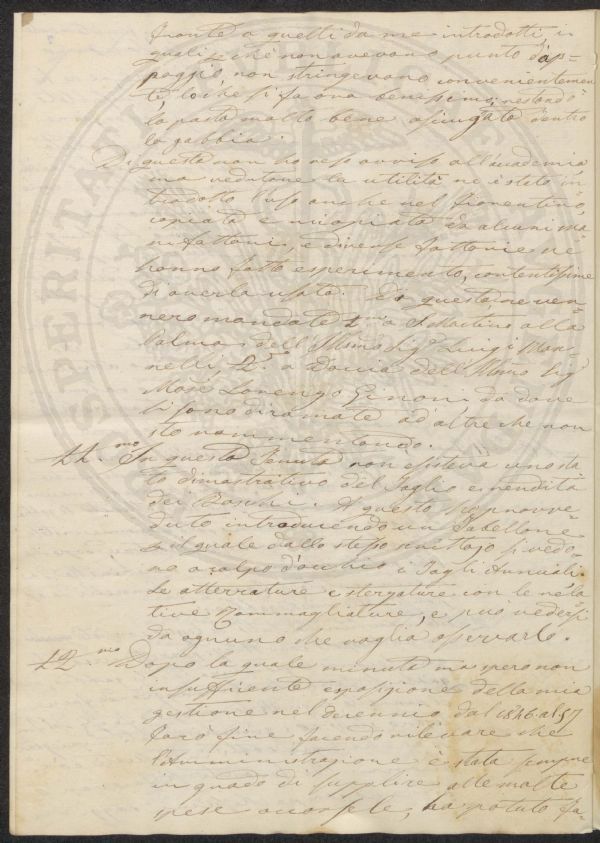 fronte a quelli da me introdotti, i
quali perché non avevano punto d'ap=
poggio, non stringevano convenientemen=
te, lo che si fa ora benissimo, restando
la pasta molto bene asciugata dentro
la gabbia.
Di questa non ho reso avviso all'accademia,
ma vedutane la utilità ne è stato in=
trodotto l'uso anche nel fiorentino,
copiata e ricopiata da alcuni ma=
nifattori, e diverse fattorie ne
hanno fatto esperimento, contentissime
di averla usata. Di queste ne ven=
nero mandate 2 a S. Martino alla
Palma dell' Sig.r Luigi Man=
nelli, 12 a Doccia dell' Sig.
Mar. Lorenzo Ginori, da dove
si sono diramate ad altre che non
sto nominando.
11.mo In questa Tenuta non esisteva uno sta=
to dimostrativo del Taglio e rendita
dei Boschi. A questo provve=
duto introducendo un Tabellone
il quale dallo stesso si vedo=
no a colpo d'occhio i Tagli Annuali.
Le atterrature e stergature con le rela=
tive Rommagliature, e può vedersi
da ognuno che voglia osservarlo.
12.mo Dopo la quale minuta ma spero non
insufficiente esposizione della mia
gestione nel decennio dal 1846 al 57
farò fine facendo rilevare che
l'Amministrazione è stata sempre
in grado di supplire alle molte
spese occorsele, ha potuto fa=